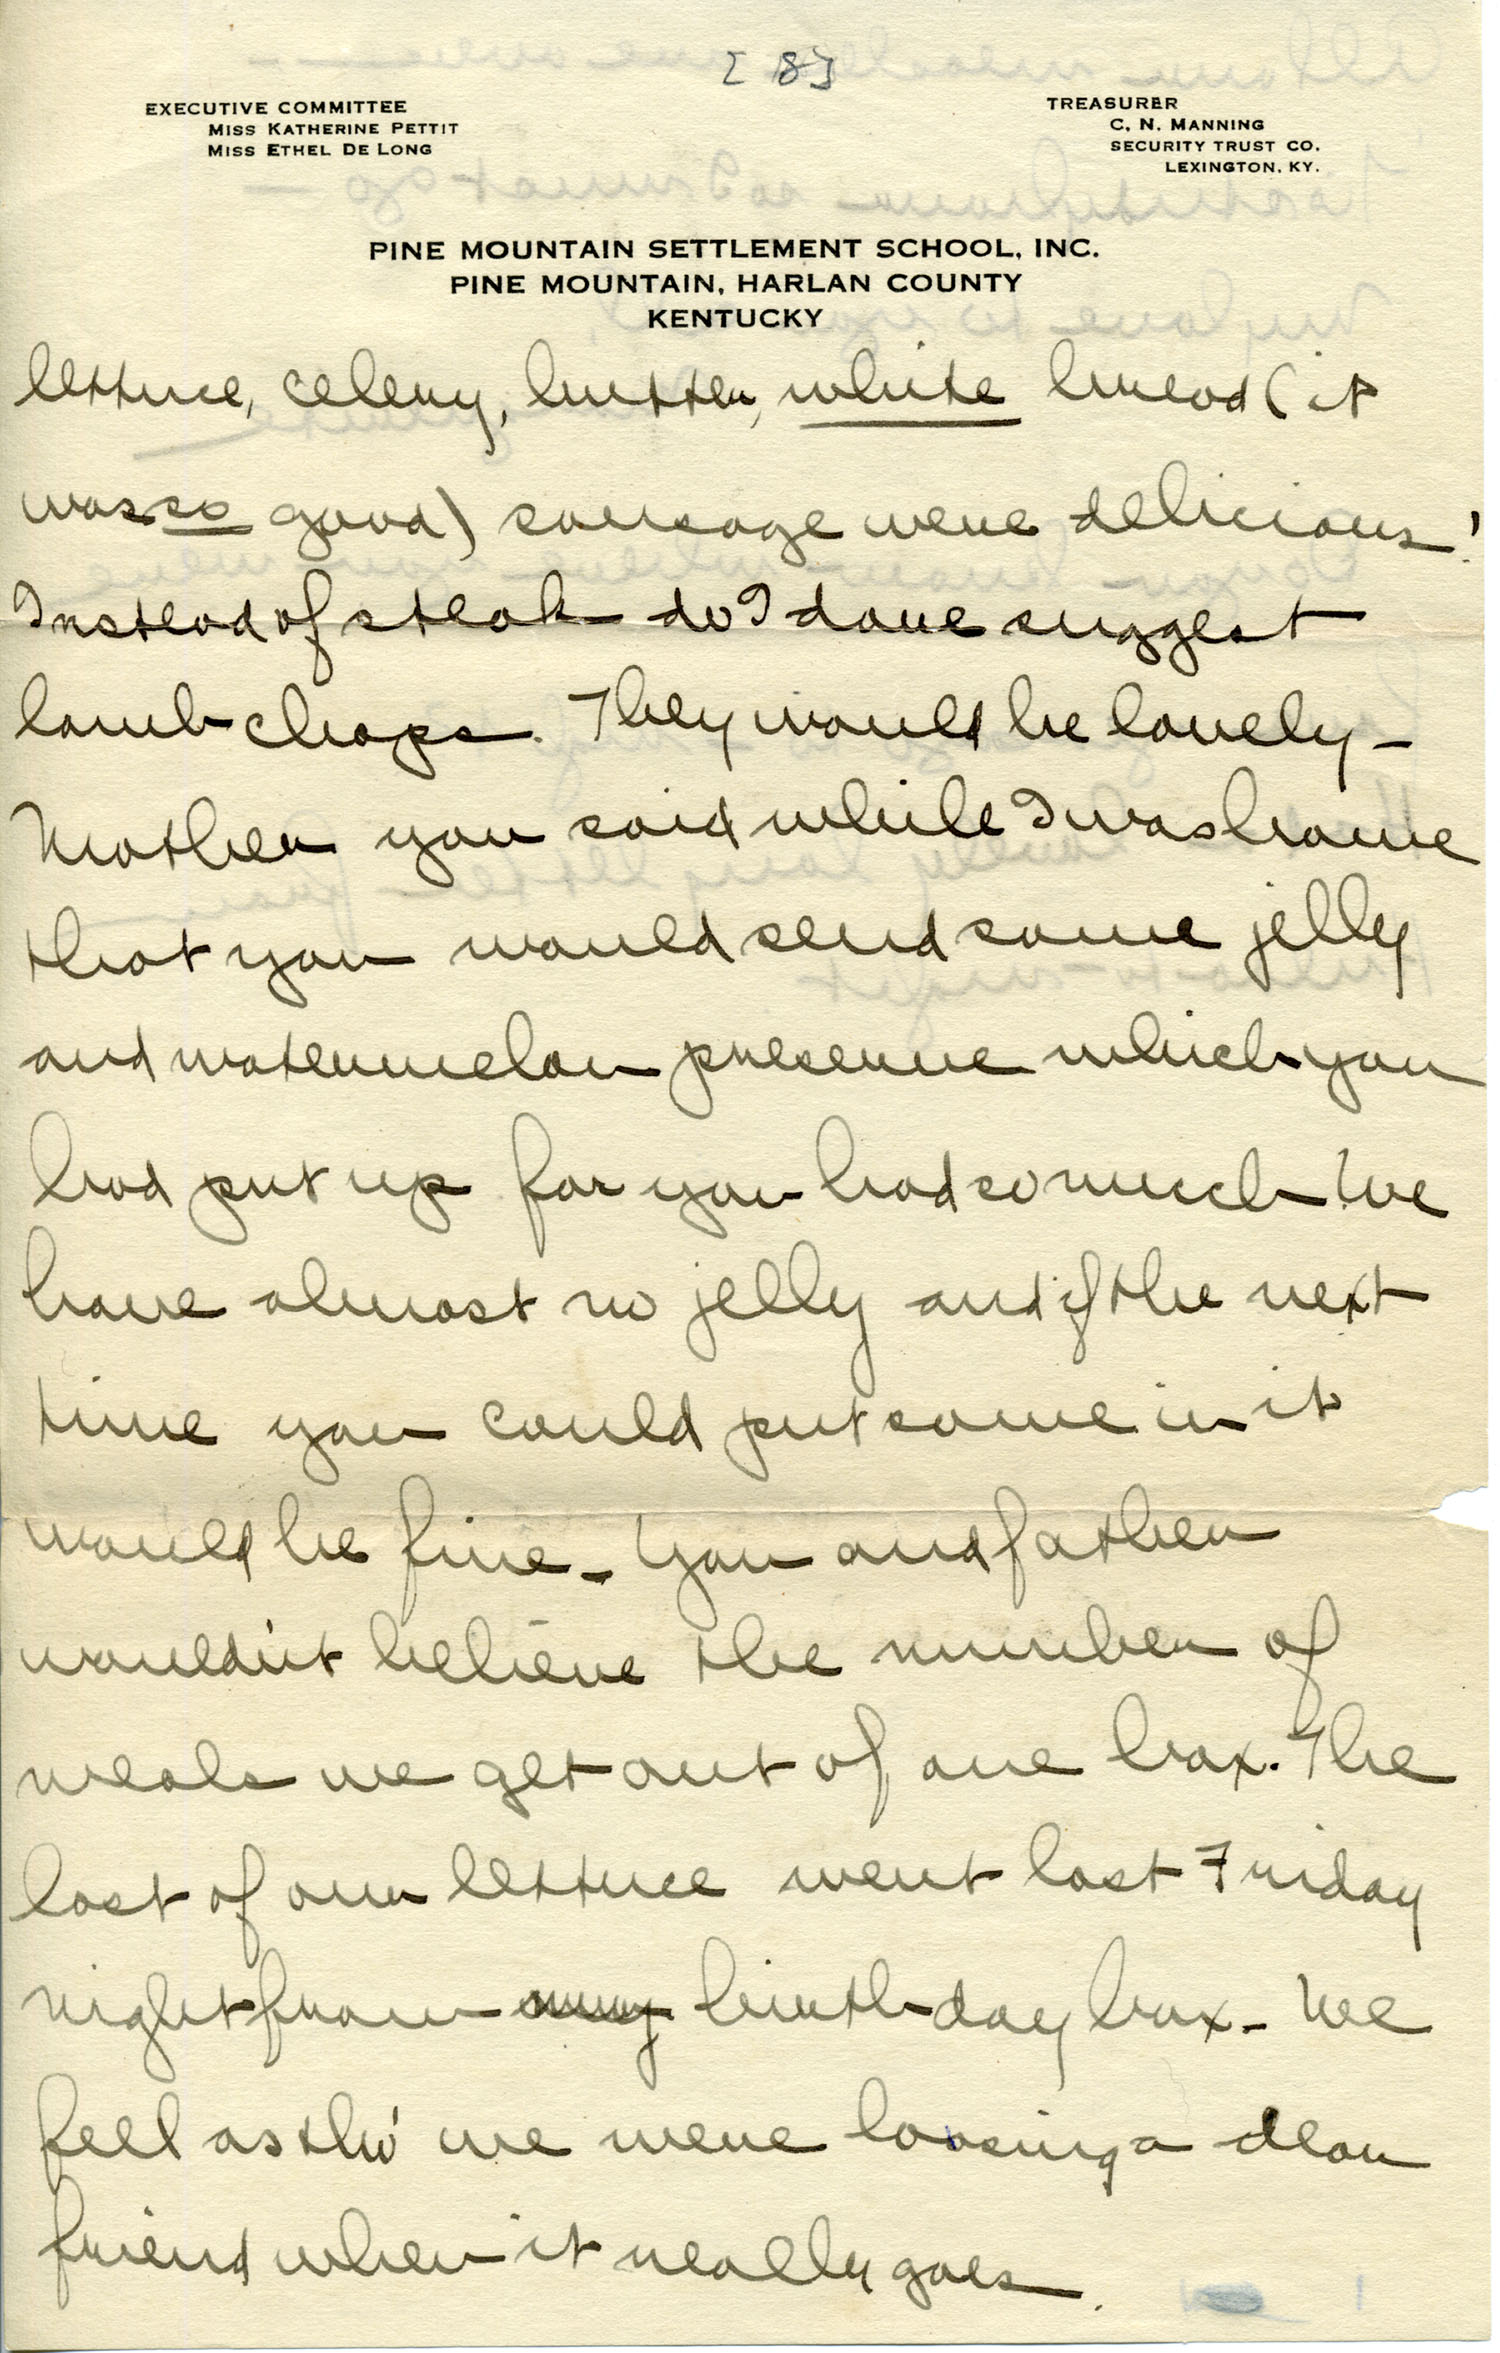 [8]
EXECUTIVE COMMITTEE
MISS KATHERINE PETTIT
MISS ETHEL DE LONG
TREASURER
C. N. MANNING
SECURITY TRUST CO.
LEXINGTON, KY.
PINE MOUNTAIN SETTLEMENT SCHOOL, INC.
PINE MOUNTAIN, HARLAN COUNTY
KENTUCKY
lettuce, celery, butter, white bread (it
was so good) sausage were delicious!
Instead of steak do I dare suggest
lamb chops. They would be lovely –
Mother you said while I was home
that you would send some jelly
and watermelon preserve which you
had put up for you had so much. We
have almost no jelly and if the next
time you could put some in it
would be fine – You and father
wouldn't believe the number of
meals we get out of one box. The
last of our lettuce went last Friday
night from my birth-day box – We
feel as tho' we were loosing a dear
friend when it really goes.